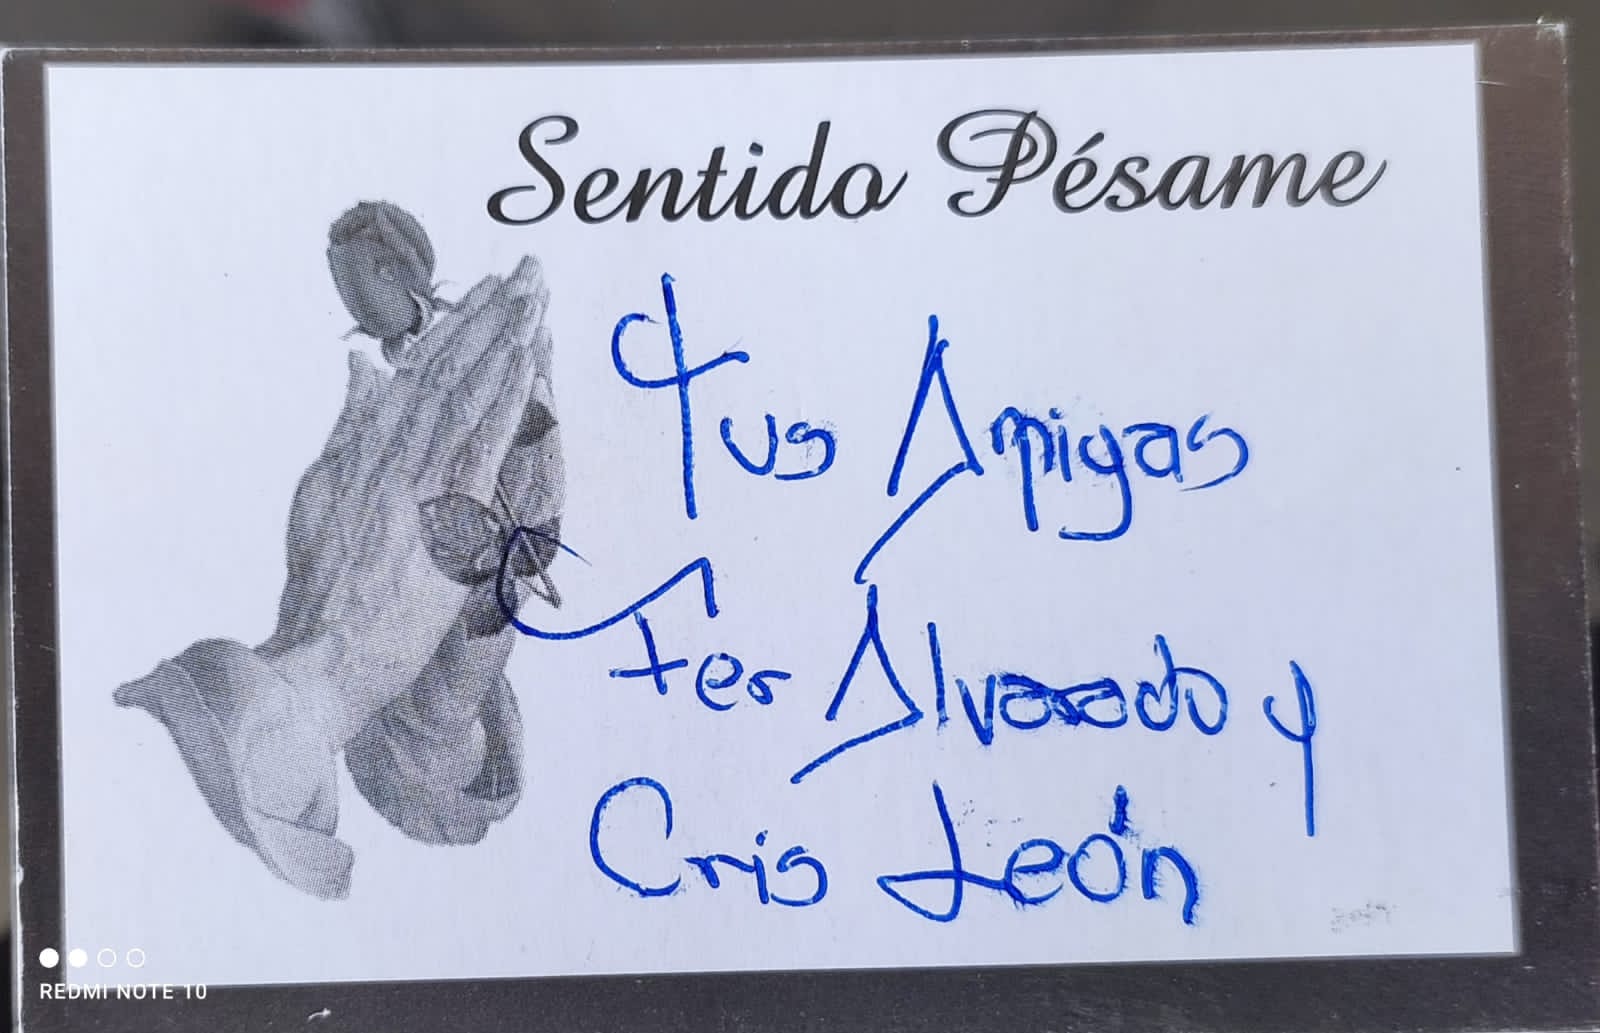 Sentido Pésame
Tus Amigas
Fer Alvarado y
Cris León
REDMI NOTE 10